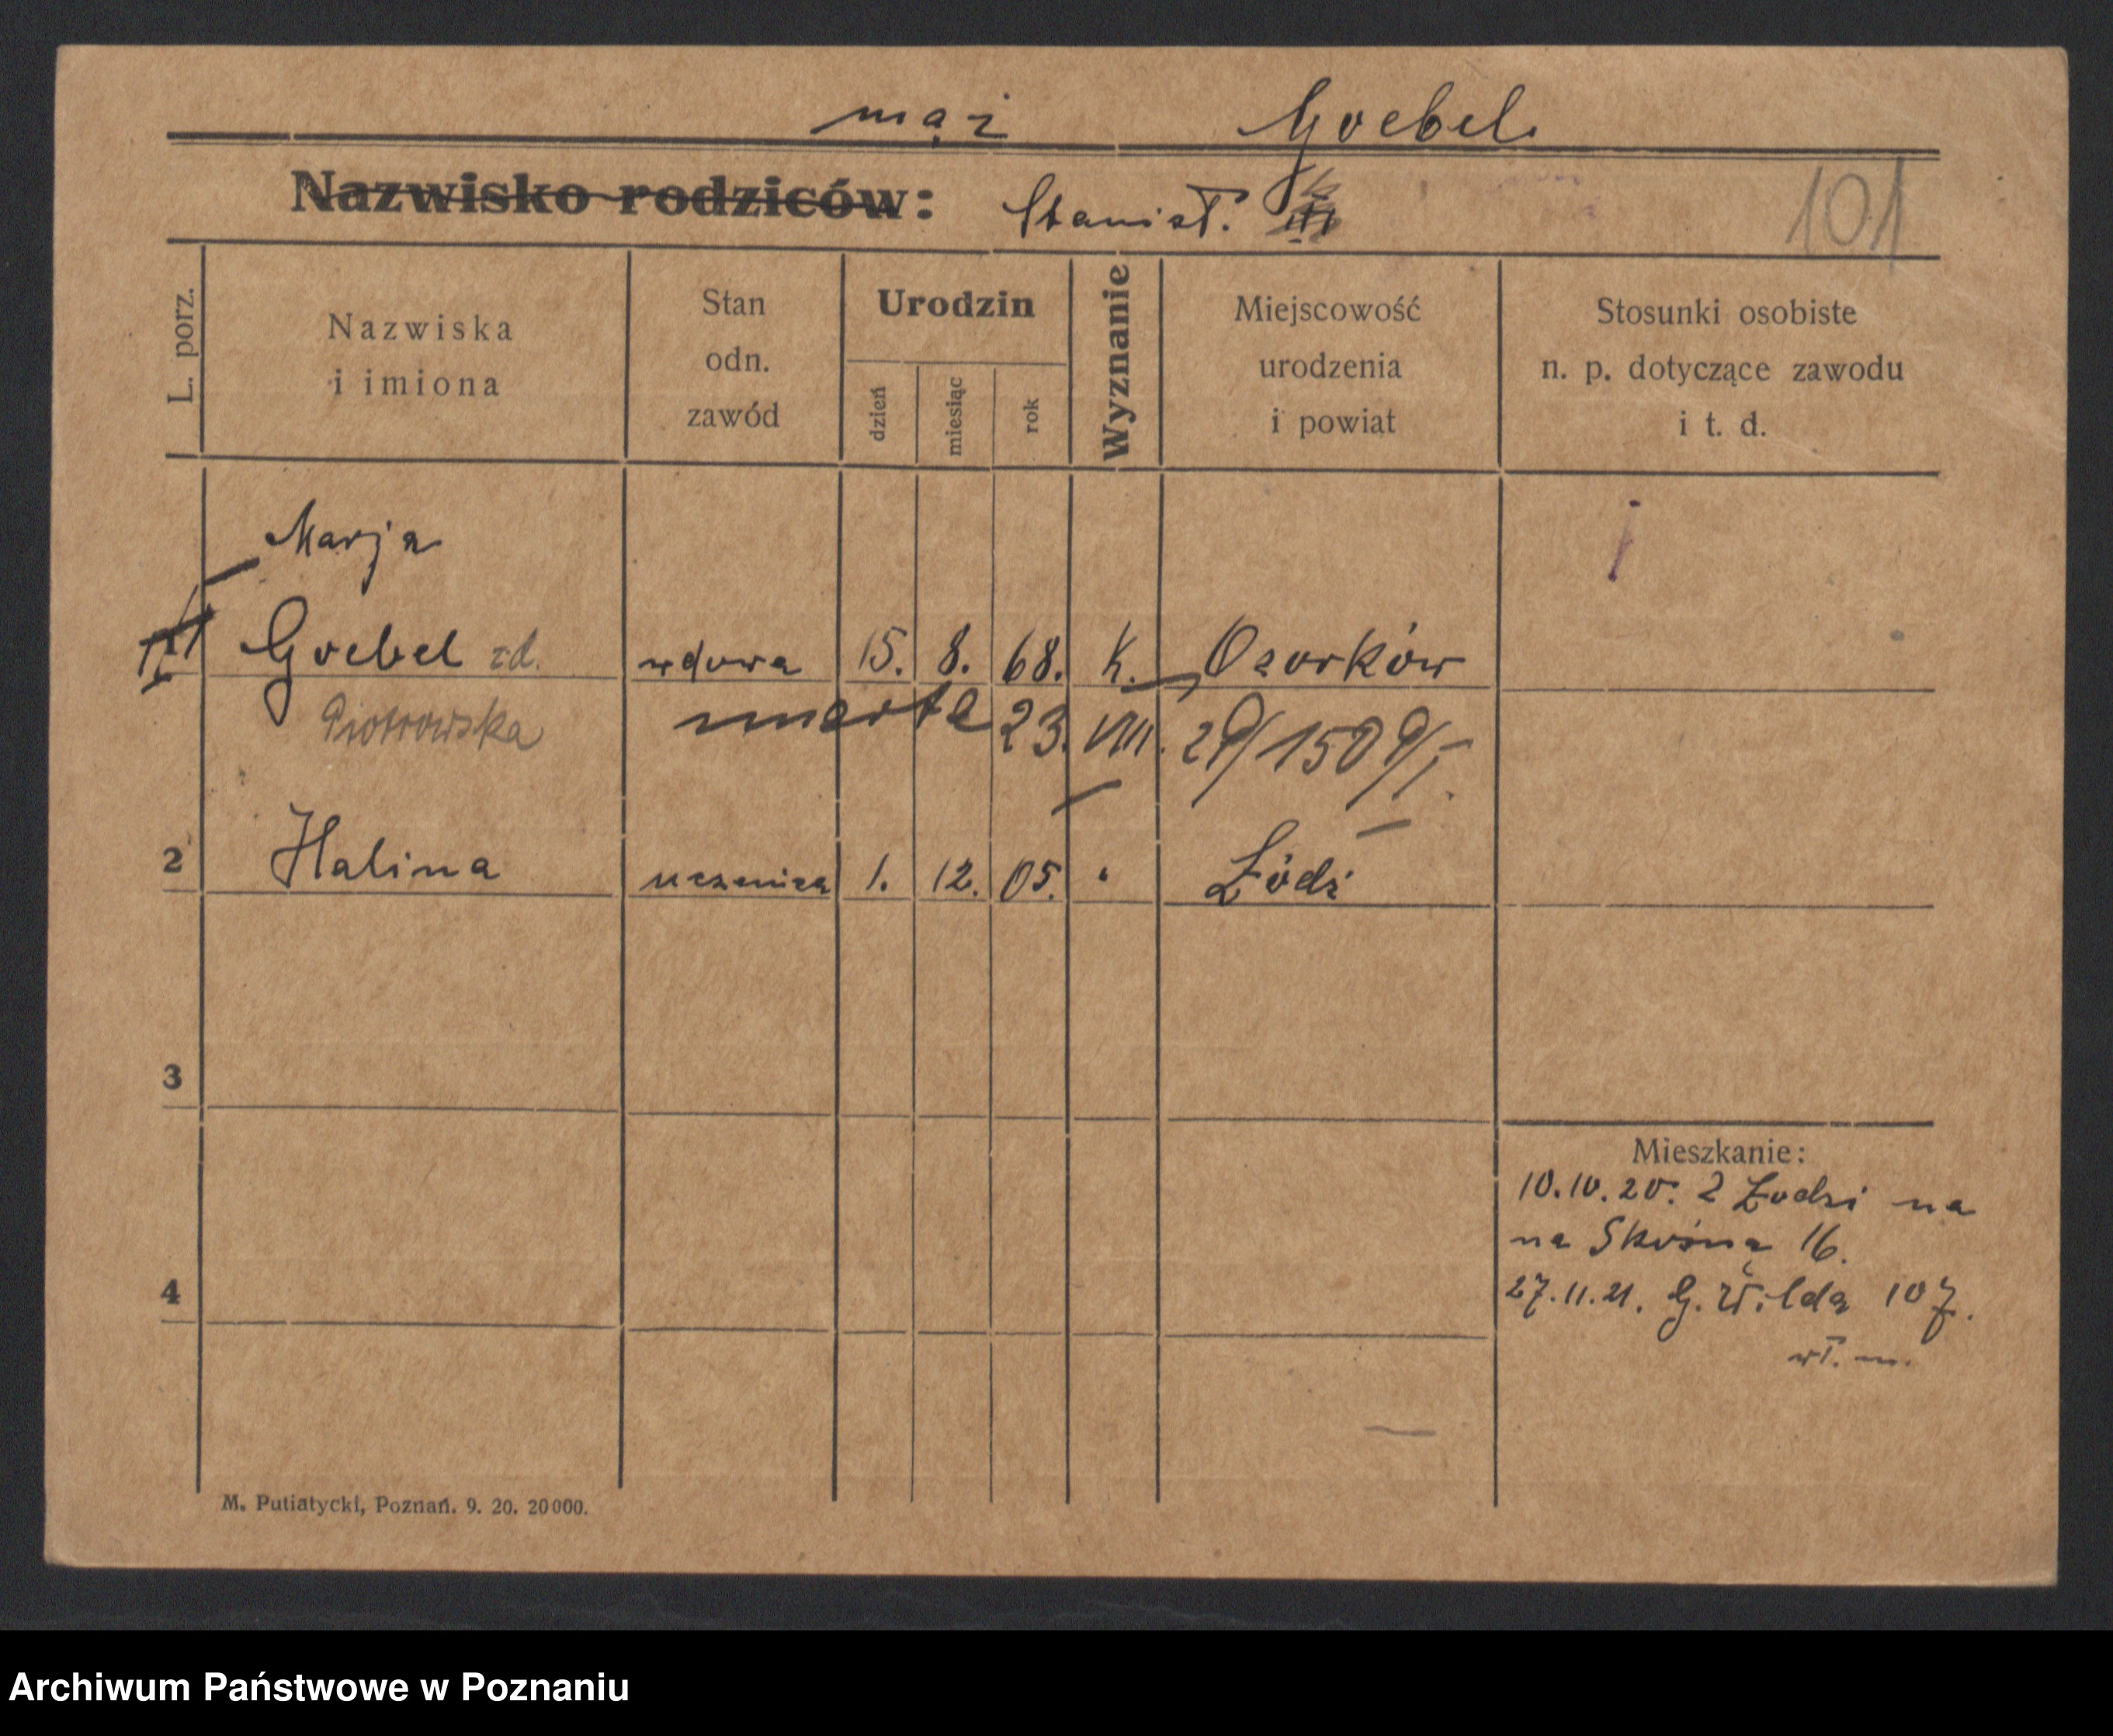 mąż Goebel
Nazwisko rodziców: Stanisł.
101
L. porz.
Nazwiska
i imiona
Stan
odn.
zawód
Urodzin
dzień
miesiąc
rok
Wyznanie
Miejscowość
urodzenia
i powiat
Stosunki osobiste
n. p. dotyczące zawodu
i t. d.
Marja
Goebel zd. wdowa 15. 8. 68. K. Ozorków
Piotrowska umarła 23. VIII. 29/1509/I.
2 Halina uczenica 1. 12. 05. Łódź
3
4
Mieszkanie:
10.10.20. z Łodzi na
na Skośną 16.
27.11.21. G. Wilda 107.
wł. m.
M. Putiatycki, Poznań. 9. 20. 20000.
Archiwum Państwowe w Poznaniu